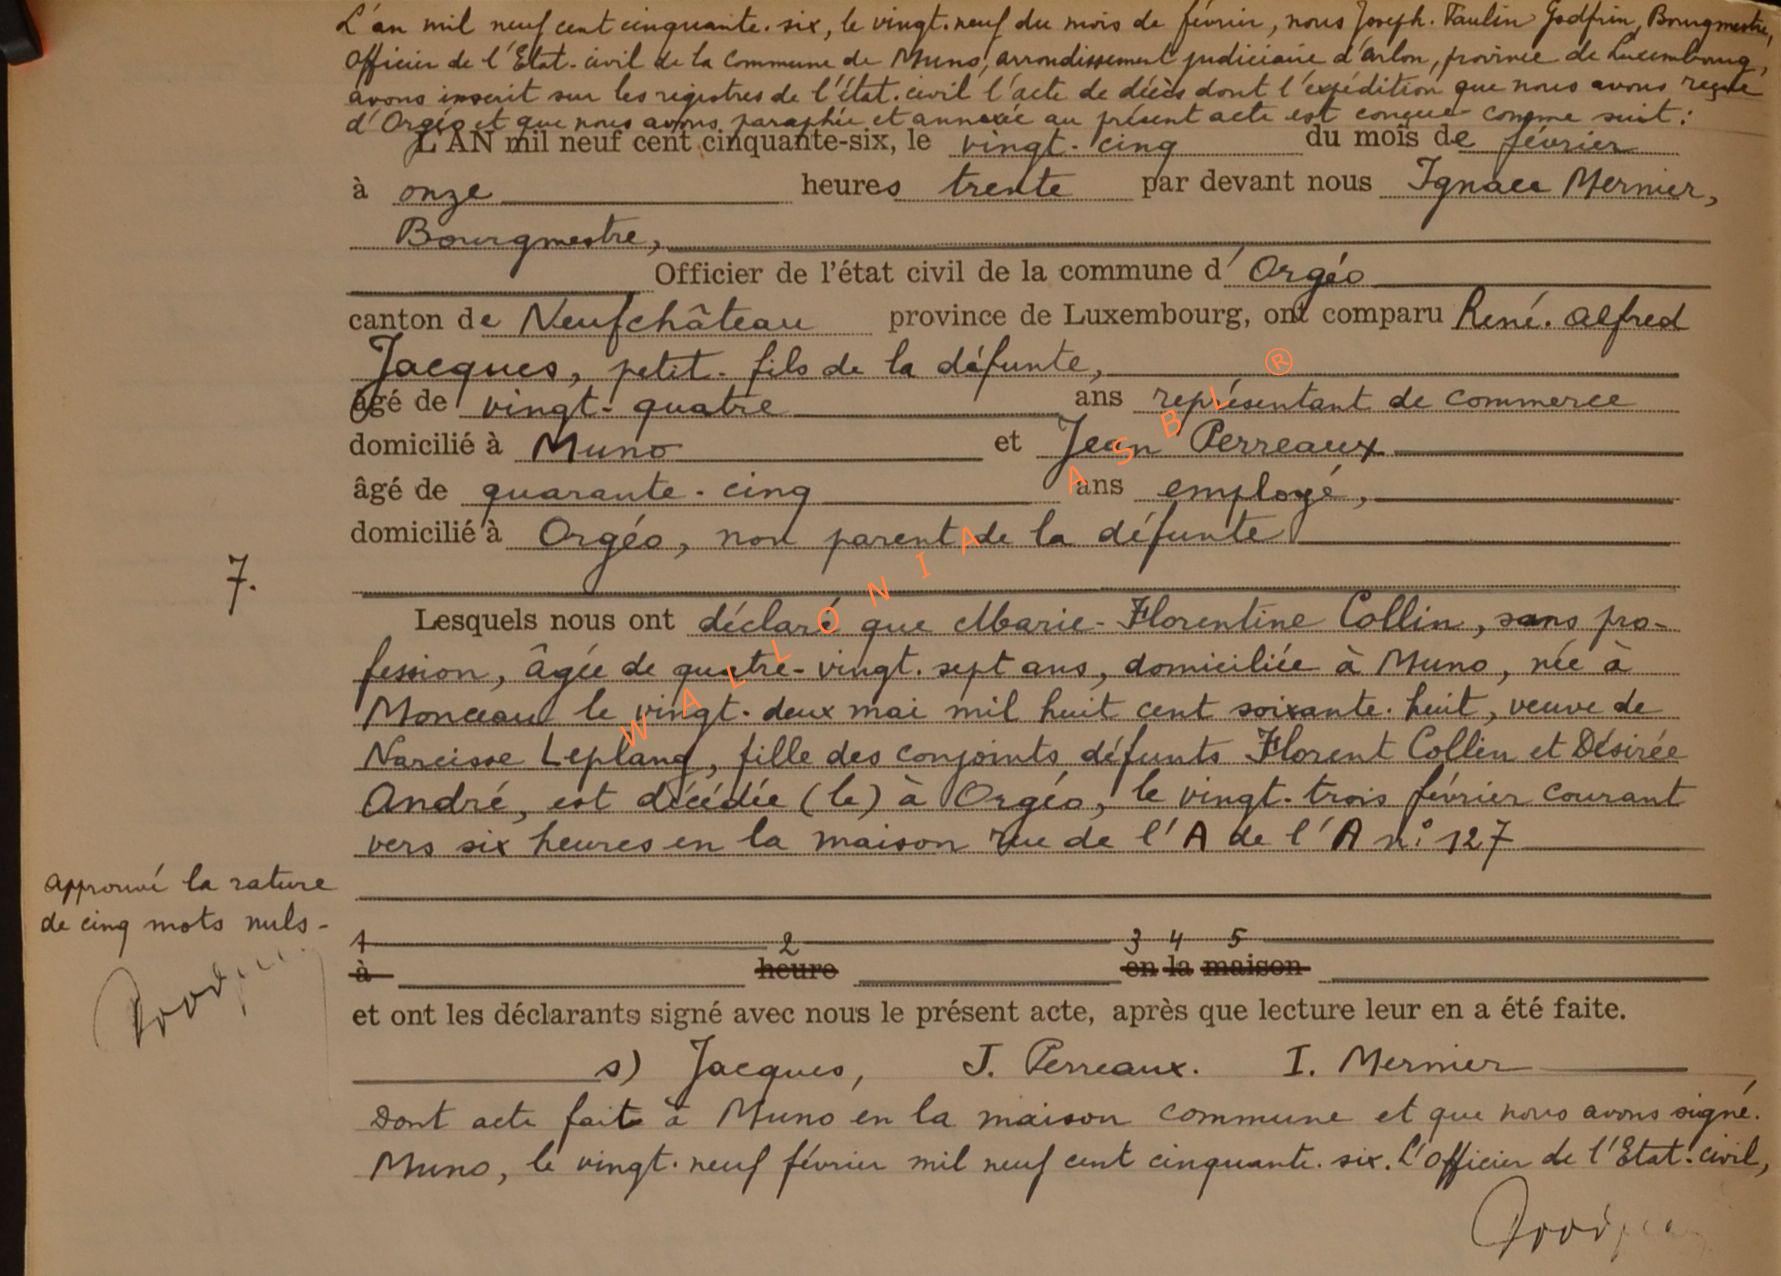 L'an mil neuf cent cinquante-six, le vingt-neuf du mois de février, nous Joseph-Paulin Godfrin, Bourgmestre,
Officier de l'Etat-civil de la commune de Muno, arrondissement judiciaire d'Arlon, province de Luxembourg,
avons inscrit sur les registres de l'état-civil l'acte de décès dont l'expédition que nous avons reçue
d'Orgéo et que nous avons paraphée et annexée au présent acte est conçue comme suit:
L'AN mil neuf cent cinquante-six, le vingt-cinq du mois de février
à onze heures trente par devant nous Ignace Mernier,
Bourgmestre,
Officier de l'état civil de la commune d'Orgéo
canton de Neufchâteau province de Luxembourg, ont comparu René-Alfred
Jacques, petit-fils de la défunte,
âgé de vingt-quatre ans représentant de commerce
domicilié à Muno et Jean Perreaux
âgé de quarante-cinq ans employé,
domicilié à Orgéo, non parent de la défunte
7.
Lesquels nous ont déclaré que Marie-Florentine Collin, sans pro-
fession, âgée de quatre-vingt-sept ans, domiciliée à Muno, née à
Monceau le vingt-deux mai mil huit cent soixante-huit, veuve de
Narcisse Leplang, fille des conjoints défunts Florent Collin et Désirée
André, est décédée (le) à Orgéo, le vingt-trois février courant
vers six heures en la maison rue de l'A de l'A n° 127
approuvé la rature
de cinq mots nuls-
1 2 3 4 5
à heure en la maison
et ont les déclarants signé avec nous le présent acte, après que lecture leur en a été faite.
s) Jacques, J. Perreaux. I. Mernier
Dont acte fait à Muno en la maison commune et que nous avons signé.
Muno, le vingt-neuf février mil neuf cent cinquante-six. L'officier de l'Etat-civil,
WALLONIA ASBL ®